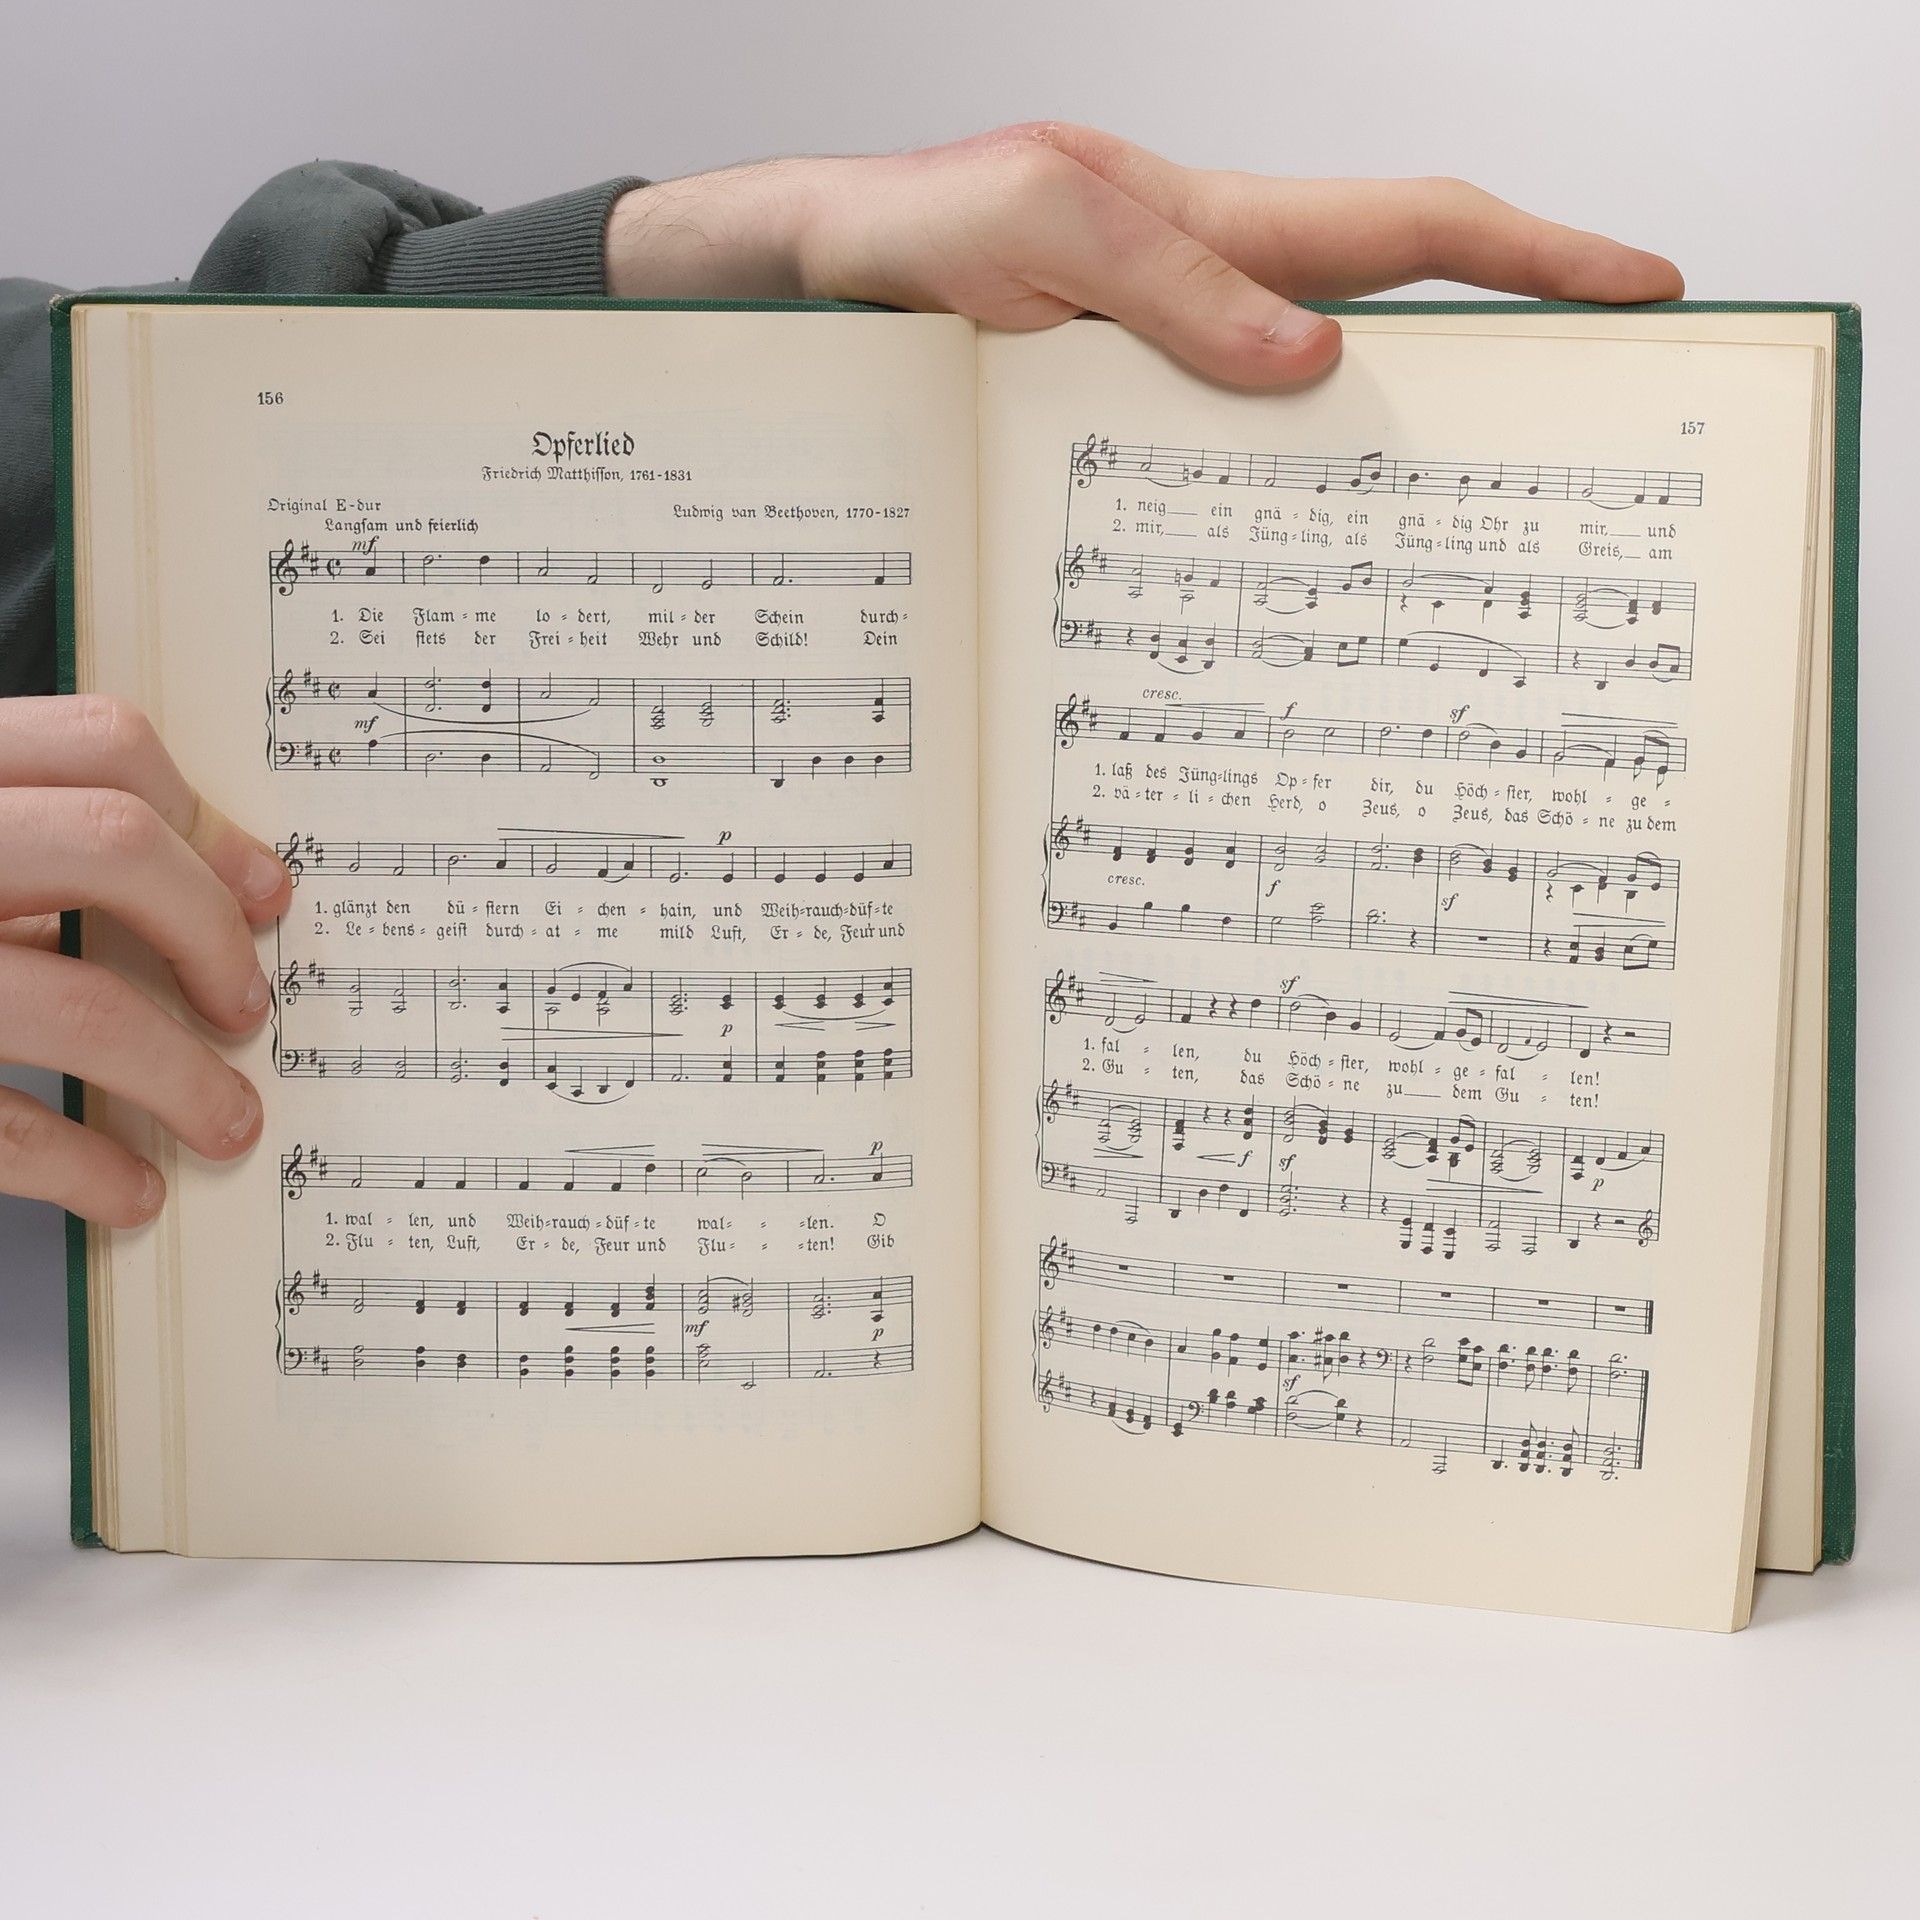 156
Opferlied
Friedrich Matthisson, 1761-1831
Original E-dur
Ludwig van Beethoven, 1770-1827
Langsam und feierlich
mf
1. Die Flam - me lo - dert, mil - der Schein durch-
2. Sei stets der Frei - heit Wehr und Schild! Dein
mf
p
1. glänzt den dü - stern Ei - chen - hain, und Weih-rauch-düf-te
2. Le - bens - geist durch - at - me mild Luft, Er - de, Feur und
p
p
1. wal - len, und Weih-rauch - düf - te wal- - -len. O
2. Flu - ten, Luft, Er - de, Feur und Flu- - -ten! Gib
mf
p
157
1. neig___ ein gnä - dig, ein gnä - dig Ohr zu mir,___ und
2. mir,___ als Jüng-ling, als Jüng-ling und als Greis,__ am
cresc.
f
sf
1. laß des Jüng-lings Op - fer dir, du Höch - ster, wohl - ge -
2. vä - ter - li - chen Herd, o Zeus, o Zeus, das Schö - ne zu dem
cresc.
f
sf
sf
1. fal - len, du Höch - ster, wohl - ge - fal - len!
2. Gu - ten, das Schö - ne zu___ dem Gu - ten!
f
sf
p
sf